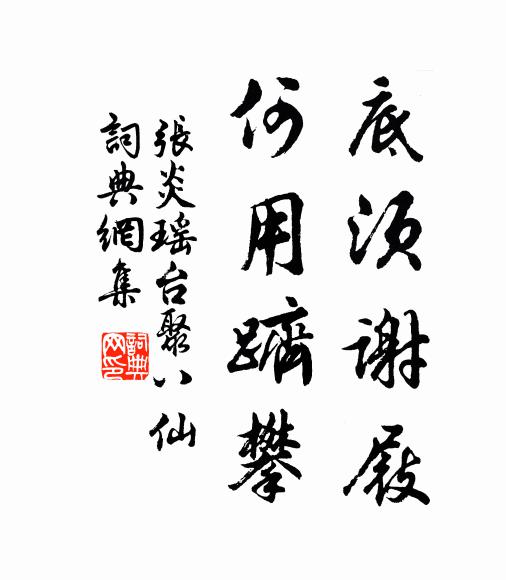 底須謝屐
何用躋攀
張炎瑶台聚八仙
詞典網集
詞典
网印